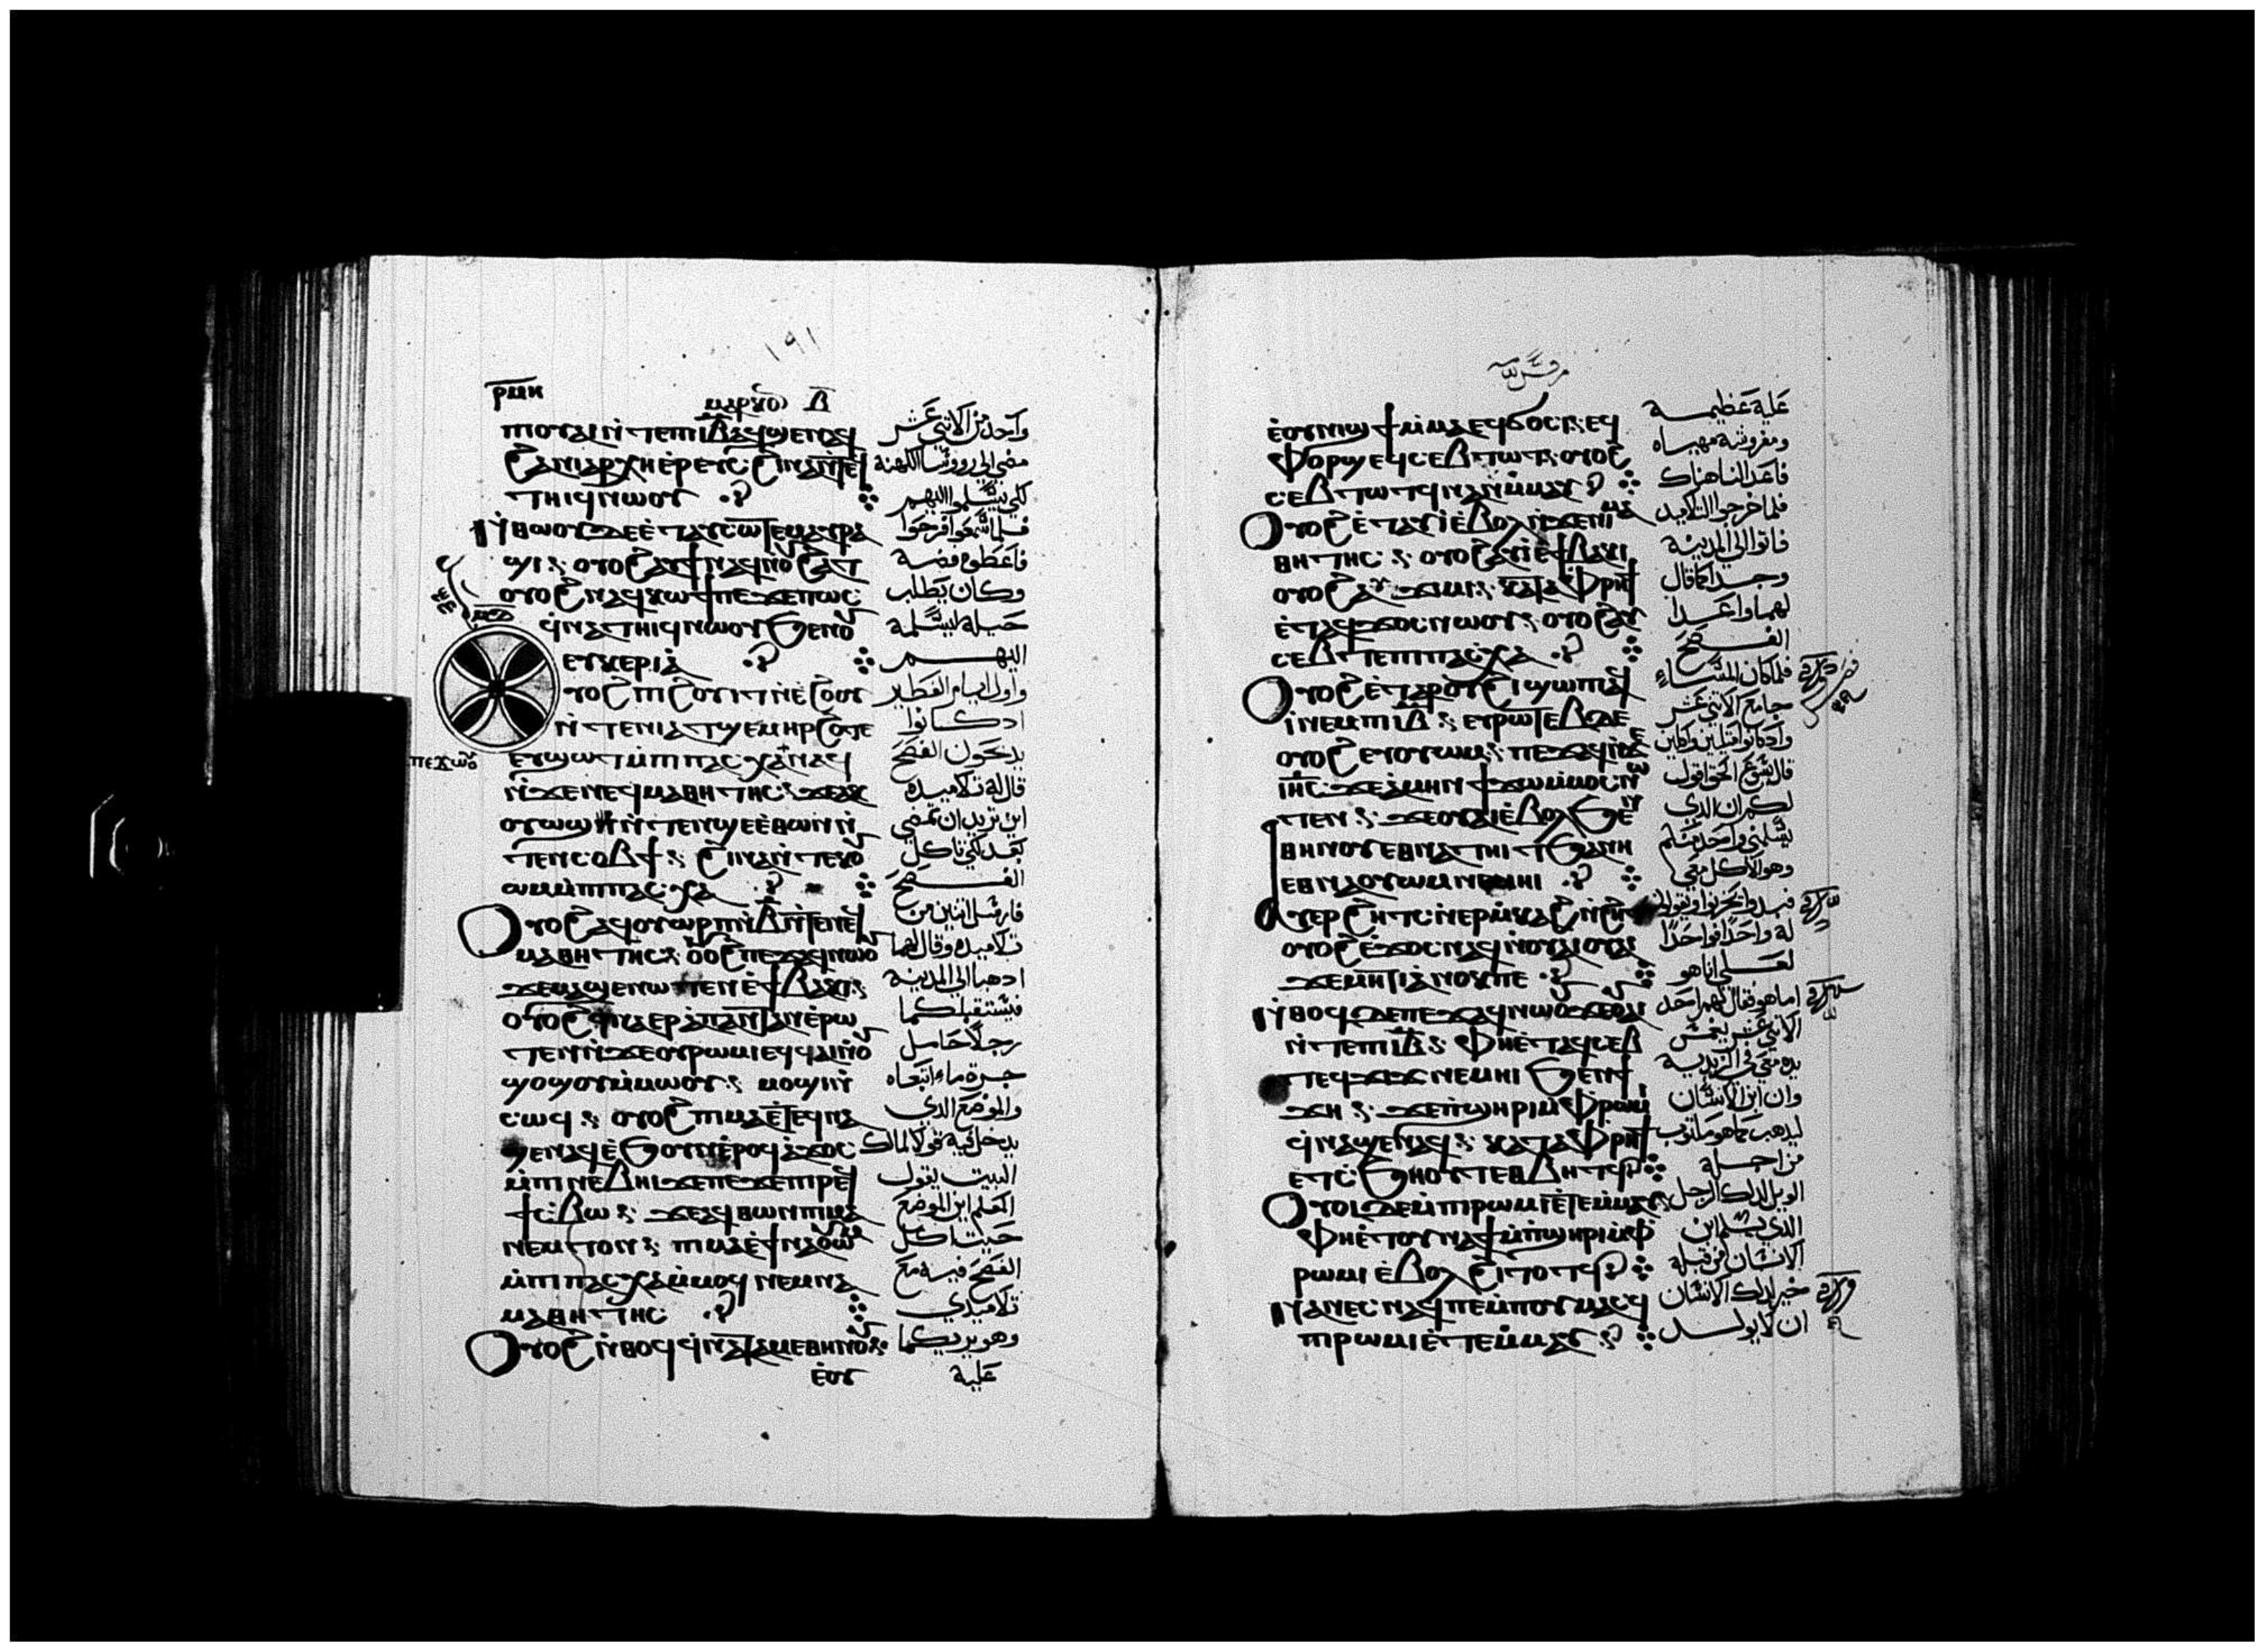 ١٩١
ⲣ̅ⲙ̅ⲏ̅
ⲙⲁⲣⲕⲟⲥ ⲇ̅
ⲡⲓⲟⲩⲁⲓ ⲛ̀ⲧⲉⲡⲓⲓ̅ⲃ̅ ⲁϥϣⲉⲛⲁϥ
ϩⲁⲛⲓⲁⲣⲭⲏⲉ̀ⲣⲉⲩⲥ ϩⲓⲛⲁ ⲛ̀ⲧⲉϥ
ⲧⲏⲓϥ ⲛⲱⲟⲩ
ⲛ̀ⲑⲱⲟⲩ ⲇⲉ ⲉ̀ⲧⲁⲩⲥⲱⲧⲉⲙ ⲁⲩⲣⲁ
ϣⲓ ⲟⲩⲟϩ ⲁⲩϯ ⲛⲁϥ ⲛⲟⲩϩⲁⲧ
ⲟⲩⲟϩ ⲛⲁϥⲕⲱϯ ⲡⲉ ϫⲉ ⲡⲱⲥ
ϥⲛⲁⲧⲏⲓϥ ⲛⲱⲟⲩ ϧⲉⲛ ⲟⲩ
ⲉⲩⲕⲉⲣⲓⲁ̀
ⲩⲟϩ ⲡⲓϩⲟⲩⲓⲧ ⲛ̀ⲉ̀ϩⲟⲟⲩ
ⲛ̀ⲧⲉ ⲛⲓⲁⲧϣⲉⲙⲏⲣ ϩⲟⲧⲉ
ⲉⲩϣⲱⲧ ⲙ̀ⲡⲓⲡⲁⲥⲭⲁ ⲛⲁϥ
ⲡⲉϫⲱⲟⲩ
ⲛ̀ϫⲉ ⲛⲉϥⲙⲁⲑⲏⲧⲏⲥ ϫⲉ ⲁⲕ
ⲟⲩⲱϣ ⲛ̀ⲧⲉⲛϣⲉ ⲉ̀ⲑⲱⲛ ⲛ̀
ⲧⲉⲛⲥⲟⲃϯ ϩⲓⲛⲁ ⲛ̀ⲧⲉⲕⲟⲩ
ⲱⲙ ⲙ̀ⲡⲓⲡⲁⲥⲭⲁ
ⲟⲩⲟϩ ⲁϥⲟⲩⲱⲣⲡ ⲛ̀ⲃ̅ ⲛ̀ⲧⲉ ⲛⲉϥ
ⲙⲁⲑⲏⲧⲏⲥ ⲟⲩⲟϩ ⲡⲉϫⲁϥ ⲛⲱⲟⲩ
ϫⲉ ⲙⲁϣⲉⲛⲱⲧⲉⲛ ⲉ̀ϯⲃⲁⲕⲓ
ⲟⲩⲟϩ ϥⲛⲁⲉⲣⲁ̀ⲡⲁⲛⲧⲁⲛ ⲉ̀ⲣⲱ
ⲧⲉⲛ ⲛ̀ϫⲉ ⲟⲩⲣⲱⲙⲓ ⲉϥϥⲁⲓ ⲛ̀ⲟⲩ
ϣⲟϣⲟⲩ ⲙ̀ⲙⲱⲟⲩ ⲙⲟϣⲓ ⲛ̀
ⲥⲱϥ ⲟⲩⲟϩ ⲡⲓⲙⲁ ⲉ̀ⲧⲉϥⲛⲁ
ϣⲉⲛⲁϥ ⲉ̀ϧⲟⲩⲛ ⲉ̀ⲣⲟϥ ⲁ̀ϫⲟⲥ
ⲙ̀ⲡⲓⲛⲉⲃⲏⲓ ϫⲉ ⲡⲉϫⲉ ⲡⲓⲣⲉϥ
ϯⲥ̀ⲃⲱ ϫⲉ ⲁϥⲑⲱⲛ ⲡⲓⲙⲁ
ⲛ̀ⲉⲙⲧⲟⲛ ⲡⲓⲙⲁ ⲉ̀ϯⲛⲁⲟⲩⲱⲙ
ⲙ̀ⲡⲓⲡⲁⲥⲭⲁ ⲙ̀ⲙⲟϥ ⲛⲉⲙ ⲛⲁ
ⲙⲁⲑⲏⲧⲏⲥ
ⲟⲩⲟϩ ⲛ̀ⲑⲟϥ ϥⲛⲁⲧⲁⲙⲉ ⲑⲏⲛⲟⲩ
ⲉ̀ⲟⲩ
واحد من الاتني عشر
مضي الي روسا الكهنة
لكي يسلموا اليهم
فلما سمعوا فرحوا
فاعطوه فضة
وكان يطلب
حيلة ليسلمة
اليهم
واول ايام الفطير
اذ كانوا
يدبحون الفصح
قال له تلاميده
اين تريد ان نمضي
نعد لكي تاكل
الفصح
فارسل اتنين من
تلاميده وقال لهما
ادهبا الي المدينه
فيستقبلكما
رجلا حامل
جرة ماء اتبعاه
والموضع الدي
يدخل فيه قولا لمالك
البيت يقول
المعلم اين الموضع
حيت اكل
الفصح فيه مع
تلاميدي
وهو يريكما
علية
مرقس
ⲉ̀ⲟⲩⲛⲓϣϯ ⲙ̀ⲙⲁ ⲉϥϭⲟⲥⲓ ⲉϥ
ⲫⲟⲣϣ ⲉϥⲥⲉⲃⲧⲱⲧ ⲟⲩⲟϩ
ⲥⲉⲃⲧⲱⲧϥ ⲛⲁⲛ ⲙ̀ⲙⲁⲩ
ⲟⲩⲟϩ ⲉ̀ⲧⲁⲩⲓ̀ ⲉ̀ⲃⲟⲗ ⲛ̀ϫⲉ ⲛⲓⲙⲁ
ⲑⲏⲧⲏⲥ ⲟⲩⲟϩ ⲁⲩⲓ̀ ⲉ̀ϯⲃⲁⲕⲓ
ⲟⲩⲟϩ ⲁⲩϫⲓⲙⲓ ⲕⲁⲧⲁ ⲫⲣⲏϯ
ⲉ̀ⲧⲁϥϫⲟⲥ ⲛⲱⲟⲩ ⲟⲩⲟϩ ⲁⲩ
ⲥⲉⲃⲧⲉ ⲡⲓⲡⲁⲥⲭⲁ
ⲟⲩⲟϩ ⲉ̀ⲧⲁ ⲣⲟⲩϩⲓ ϣⲱⲡⲓ ⲁϥ
ⲓ̀ ⲛⲉⲙ ⲡⲓⲓ̅ⲃ̅ ⲉⲩⲣⲱⲧⲉⲃ ⲇⲉ
ⲟⲩⲟϩ ⲉⲩⲟⲩⲱⲙ ⲡⲉϫⲁϥ ⲛ̀ϫⲉ
ⲓⲏ̅ⲥ̅ ϫⲉ ⲁ̀ⲙⲏⲛ ϯϫⲱ ⲙ̀ⲙⲟⲥ ⲛⲱ
ⲧⲉⲛ ϫⲉ ⲟⲩⲁⲓ ⲉ̀ⲃⲟⲗ ϧⲉⲛ
ⲑⲏⲛⲟⲩ ⲉⲑⲛⲁⲧⲏⲓⲧ ϧⲁ ⲫⲏ
ⲉⲑⲛⲁⲟⲩⲱⲙ ⲛⲉⲙⲏⲓ
ⲁⲩⲉⲣϩⲏⲧⲥ ⲛ̀ⲉⲣⲙ̀ⲕⲁϩ ⲛ̀ϩⲏⲧ
ⲟⲩⲟϩ ⲉ̀ϫⲟⲥ ⲛⲁϥ ⲛ̀ⲟⲩⲁⲓ ⲟⲩⲁⲓ
ϫⲉ ⲙⲏⲧⲓ ⲁ̀ⲛⲟⲕ ⲡⲉ
ⲛ̀ⲑⲟϥ ⲇⲉ ⲡⲉϫⲁϥ ⲛⲱⲟⲩ ϫⲉ ⲟⲩⲁⲓ
ⲛ̀ⲧⲉ ⲡⲓⲓ̅ⲃ̅ ⲫⲏ ⲉ̀ⲧⲁϥⲥⲉⲡ
ⲧⲉϥϫⲓϫ ⲛⲉⲙⲏⲓ ϧⲉⲛ ϯ
ϫⲏ ϫⲉ ⲡ̀ϣⲏⲣⲓ ⲙ̀ⲫⲣⲱⲙⲓ
ϥⲛⲁϣⲉⲛⲁϥ ⲕⲁⲧⲁ ⲫⲣⲏϯ
ⲉⲧⲥϧⲏⲟⲩⲧ ⲉⲑⲃⲏⲧϥ
ⲟⲩⲟⲓ ⲇⲉ ⲙ̀ⲡⲓⲣⲱⲙⲓ ⲉ̀ⲧⲉⲙⲙⲁⲩ
ⲫⲏ ⲉ̀ⲧⲟⲩⲛⲁϯ ⲙ̀ⲡ̀ϣⲏⲣⲓ ⲙ̀ⲫ
ⲣⲱⲙⲓ ⲉ̀ⲃⲟⲗ ϩⲓⲧⲟⲧϥ
ⲛⲁⲛⲉⲥ ⲛⲁϥ ⲡⲉ ⲙ̀ⲡⲟⲩⲙⲁⲥϥ
ⲡⲓⲣⲱⲙⲓ ⲉ̀ⲧⲉⲙ̀ⲙⲁⲩ
علية عظيمة
ومفروشة مهياه
فاعدا لنا هناك
فلما خرجوا التلاميد
فاتوا الي المدينة
وجدا كما قال
لهما واعدا
الفصح
فلما كان المساء
جا مع الاتني عشر
واد كانوا متكيين واكلين
قال يسوع الحق اقول
لكم ان الدي
يسلمني واحد منكم
وهو الاكل معي
فبدوا يحزنوا ويقولوا
له واحدا فواحدا
لعلي انا هو
اما هو فقال لهم احد
الاتني عشر يغمس
يده معي في الزبدية
وان ابن الانسان
ليدهب كما هو مكتوب
من اجله
الويل لدلك الرجل
الدي يسلم ابن
الانسان من قبله
خير لدلك الانسان
ان لا يولد